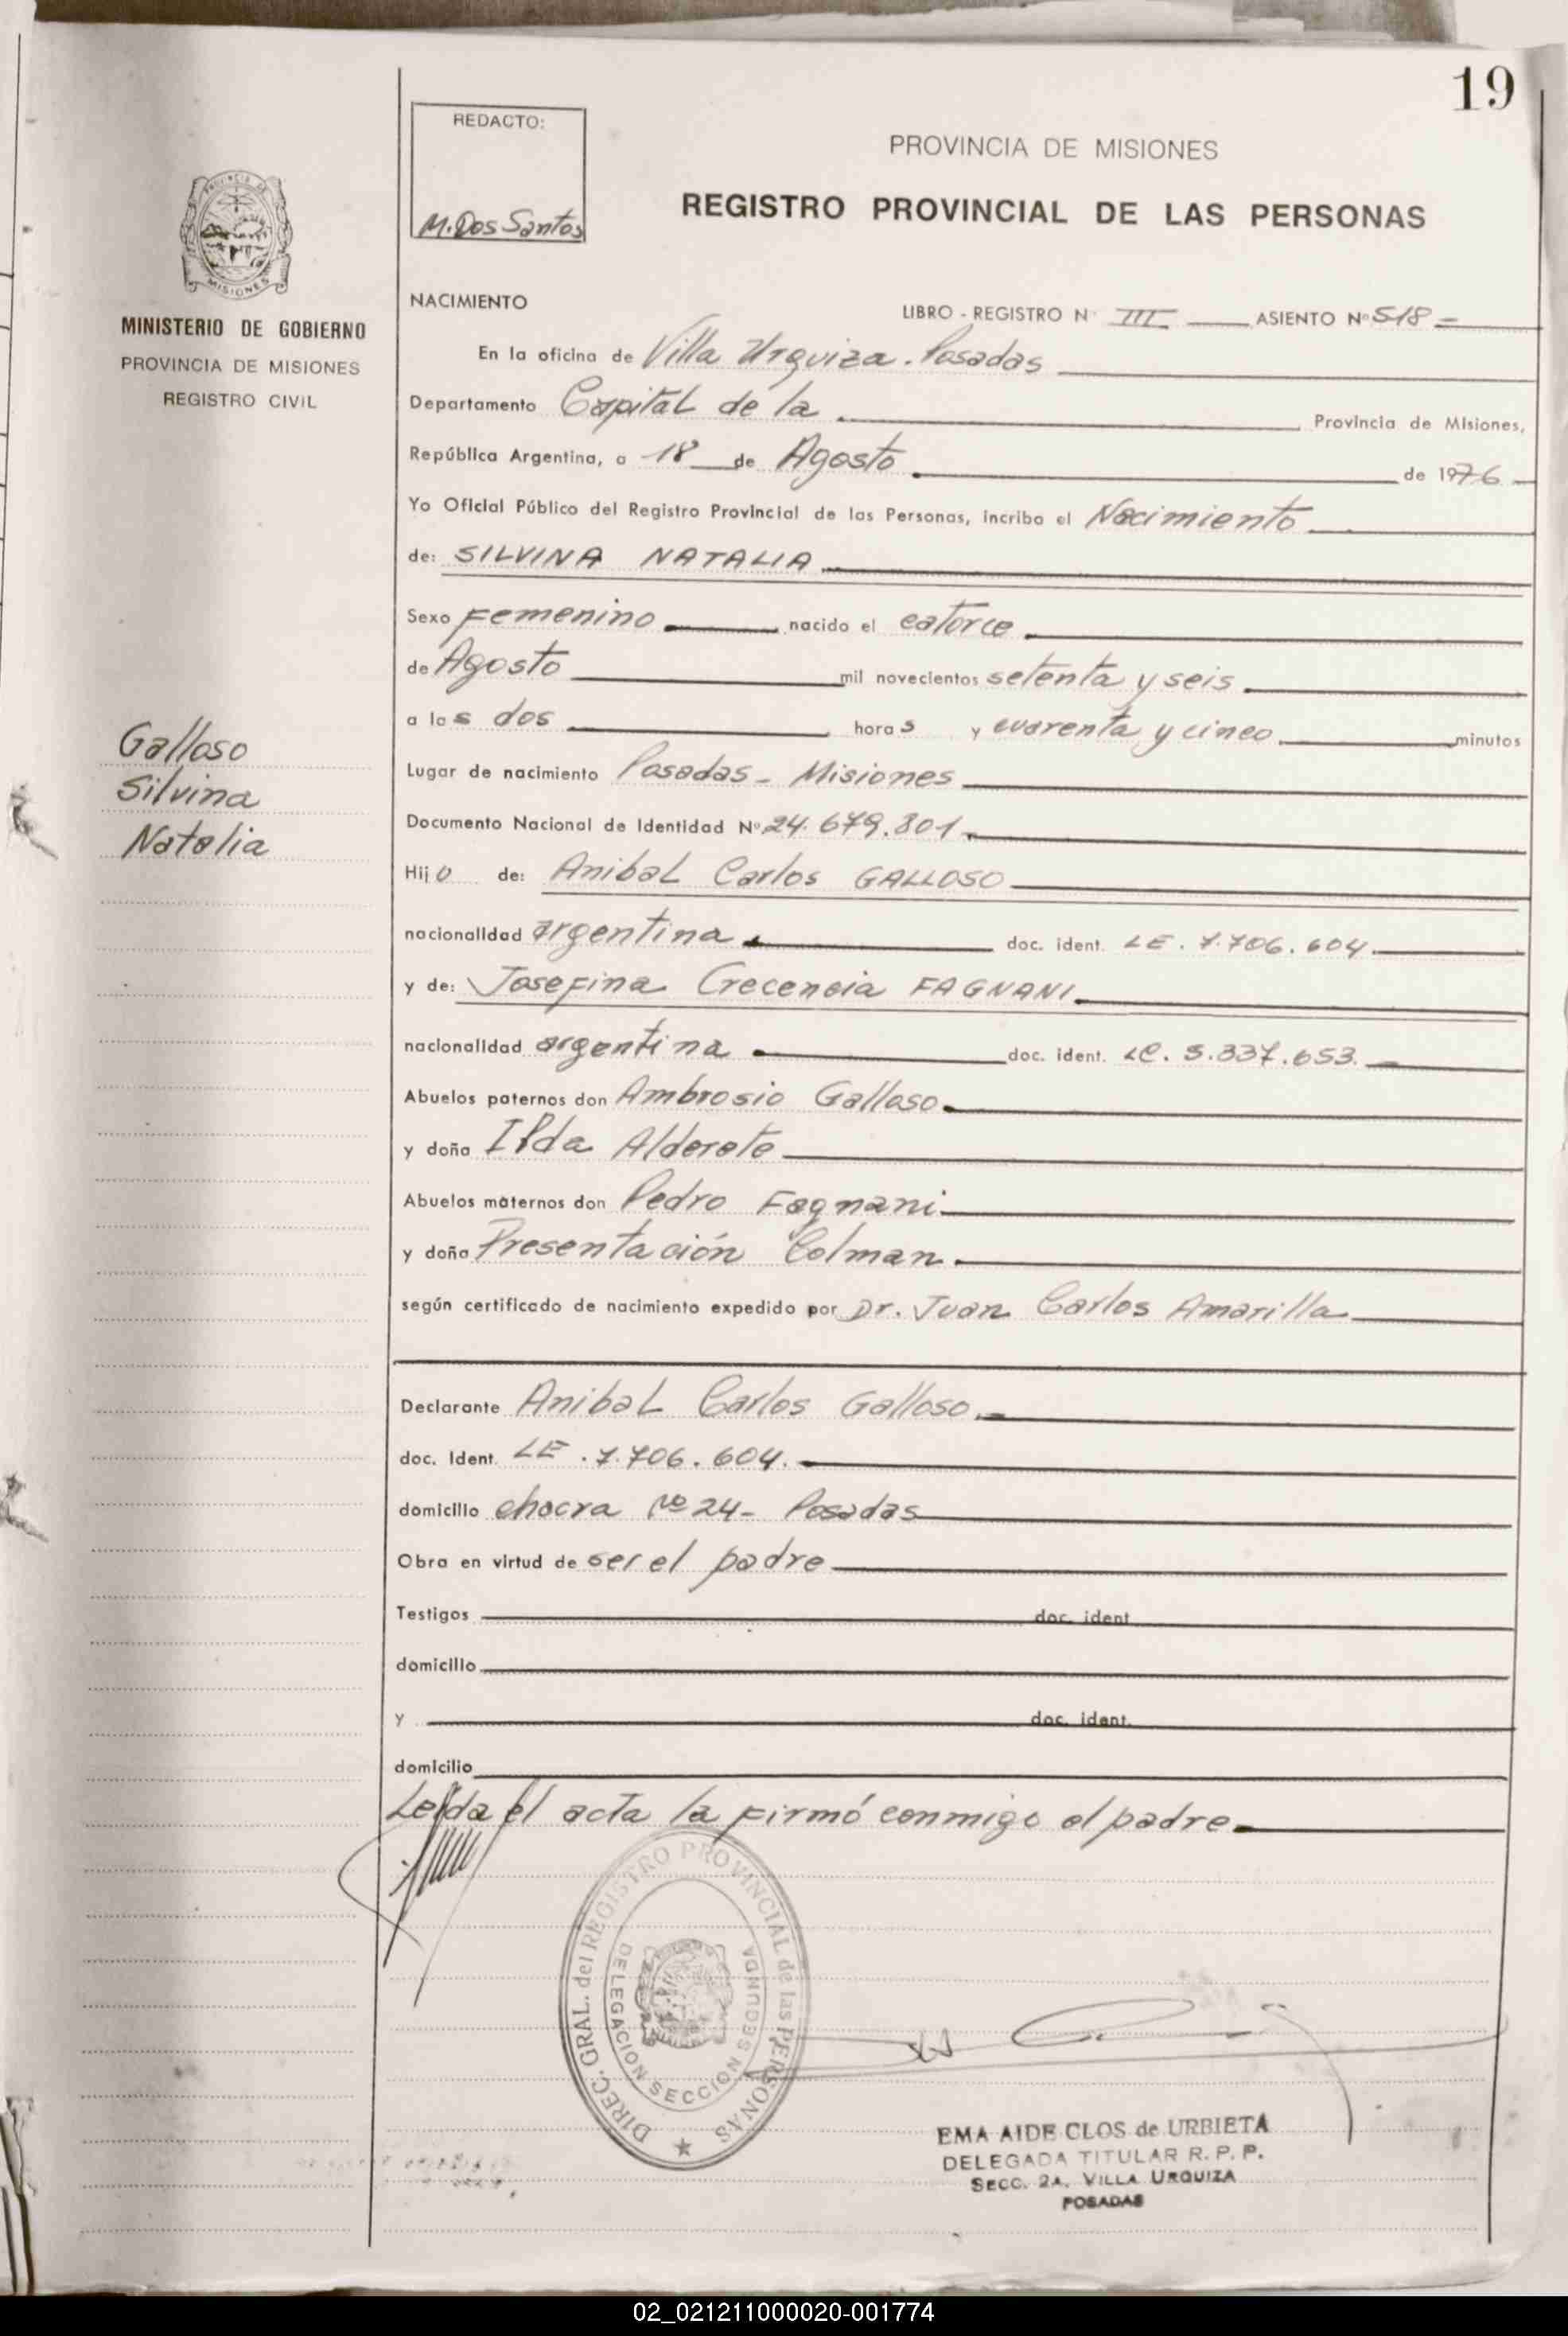 19
REDACTO:
M. Dos Santos
PROVINCIA DE MISIONES
REGISTRO PROVINCIAL DE LAS PERSONAS
PROVINCIA DE
MISIONES
MINISTERIO DE GOBIERNO
PROVINCIA DE MISIONES
REGISTRO CIVIL
NACIMIENTO
LIBRO - REGISTRO N° III ASIENTO Nº 518
En la oficina de Villa Urquiza. Posadas
Departamento Capital de la Provincia de Misiones,
República Argentina, a 18 de Agosto de 1976
Yo Oficial Público del Registro Provincial de las Personas, incribo el Nacimiento
de: SILVINA NATALIA
Sexo Femenino nacido el catorce
de Agosto mil novecientos setenta y seis
a las dos horas y cuarenta y cinco minutos
Lugar de nacimiento Posadas - Misiones
Documento Nacional de Identidad Nº 24.679.301
Galloso
Silvina
Natalia
Hijo de: Anibal Carlos GALLOSO
nacionalidad argentina doc. ident. LE. 7.706.604
y de: Josefina Crecencia FAGNANI
nacionalidad argentina doc. ident. LC. 5.337.653.
Abuelos paternos don Ambrosio Galloso
y doña Ilda Alderete
Abuelos maternos don Pedro Fagnani
y doña Presentación Colman
según certificado de nacimiento expedido por Dr. Juan Carlos Amarilla
Declarante Anibal Carlos Galloso
doc. Ident. LE. 7.706.604.
domicilio chacra Nº 24 - Posadas
Obra en virtud de ser el padre
Testigos doc. ident
domicilio
y doc. ident.
domicilio
Leída el acta la firmó conmigo el padre
DIREC. GRAL. del REGISTRO PROVINCIAL de las PERSONAS
DELEGACION SECCION SEGUNDA
EMA AIDE CLOS de URBIETA
DELEGADA TITULAR R. P. P.
SECC. 2A. VILLA URQUIZA
POSADAS
02_021211000020-001774